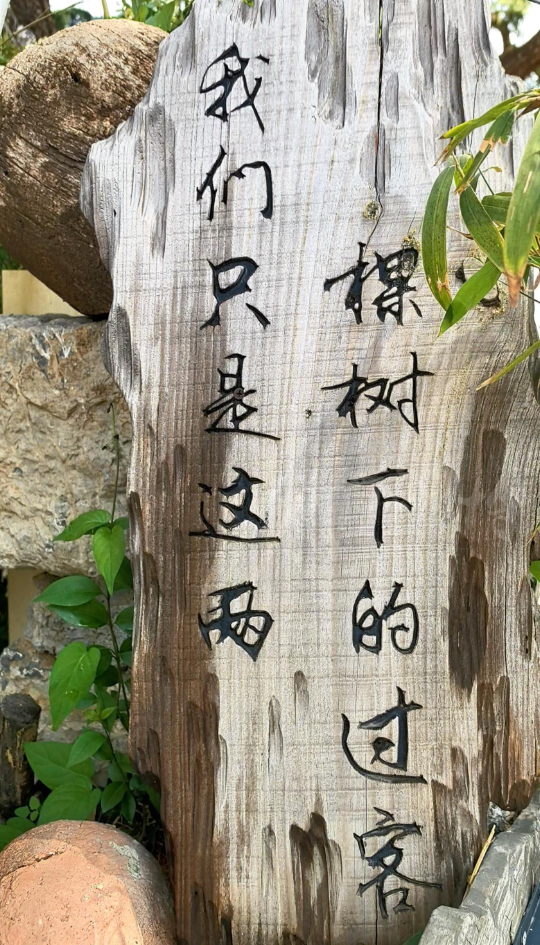 我们只是这两
棵树下的过客